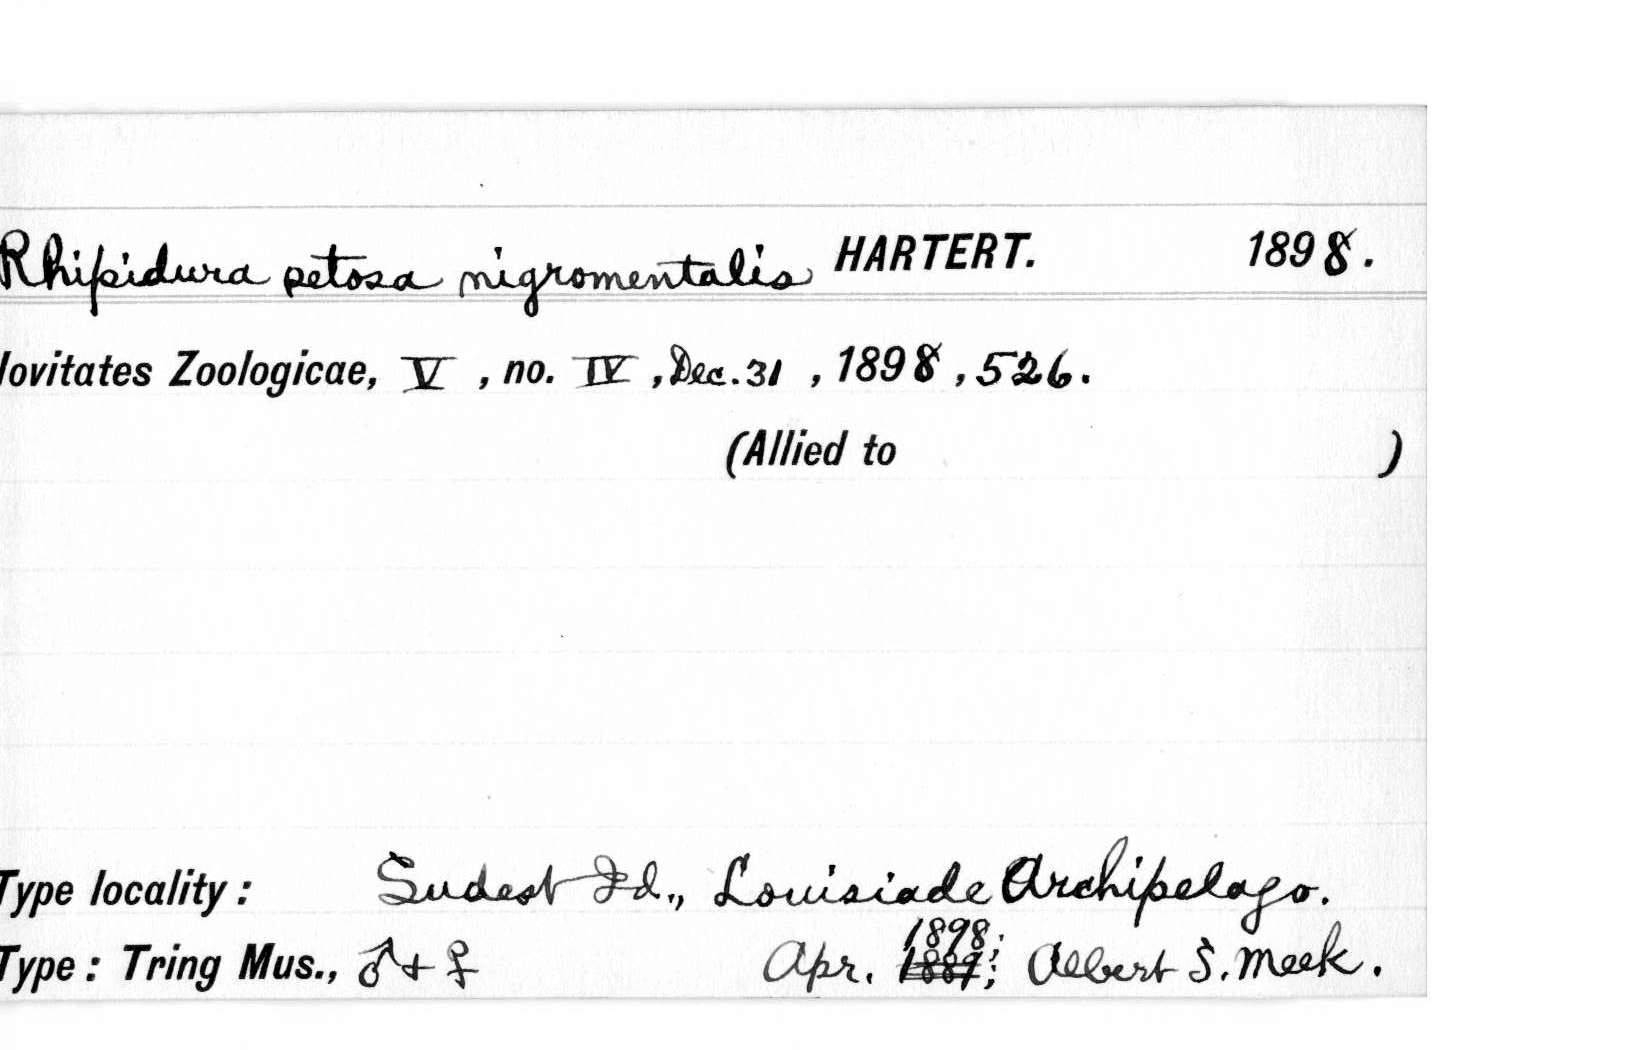 Rhipidura setosa nigromentalis HARTERT. 1898.
ovitates Zoologicae, V, no. IV, Dec. 31, 1898, 526.
(Allied to )
Type locality: Sudest Id., Louisiade Archipelago.
1898;
Type: Tring Mus., ♂ + ♀ Apr. 1889; Albert S. Meek.